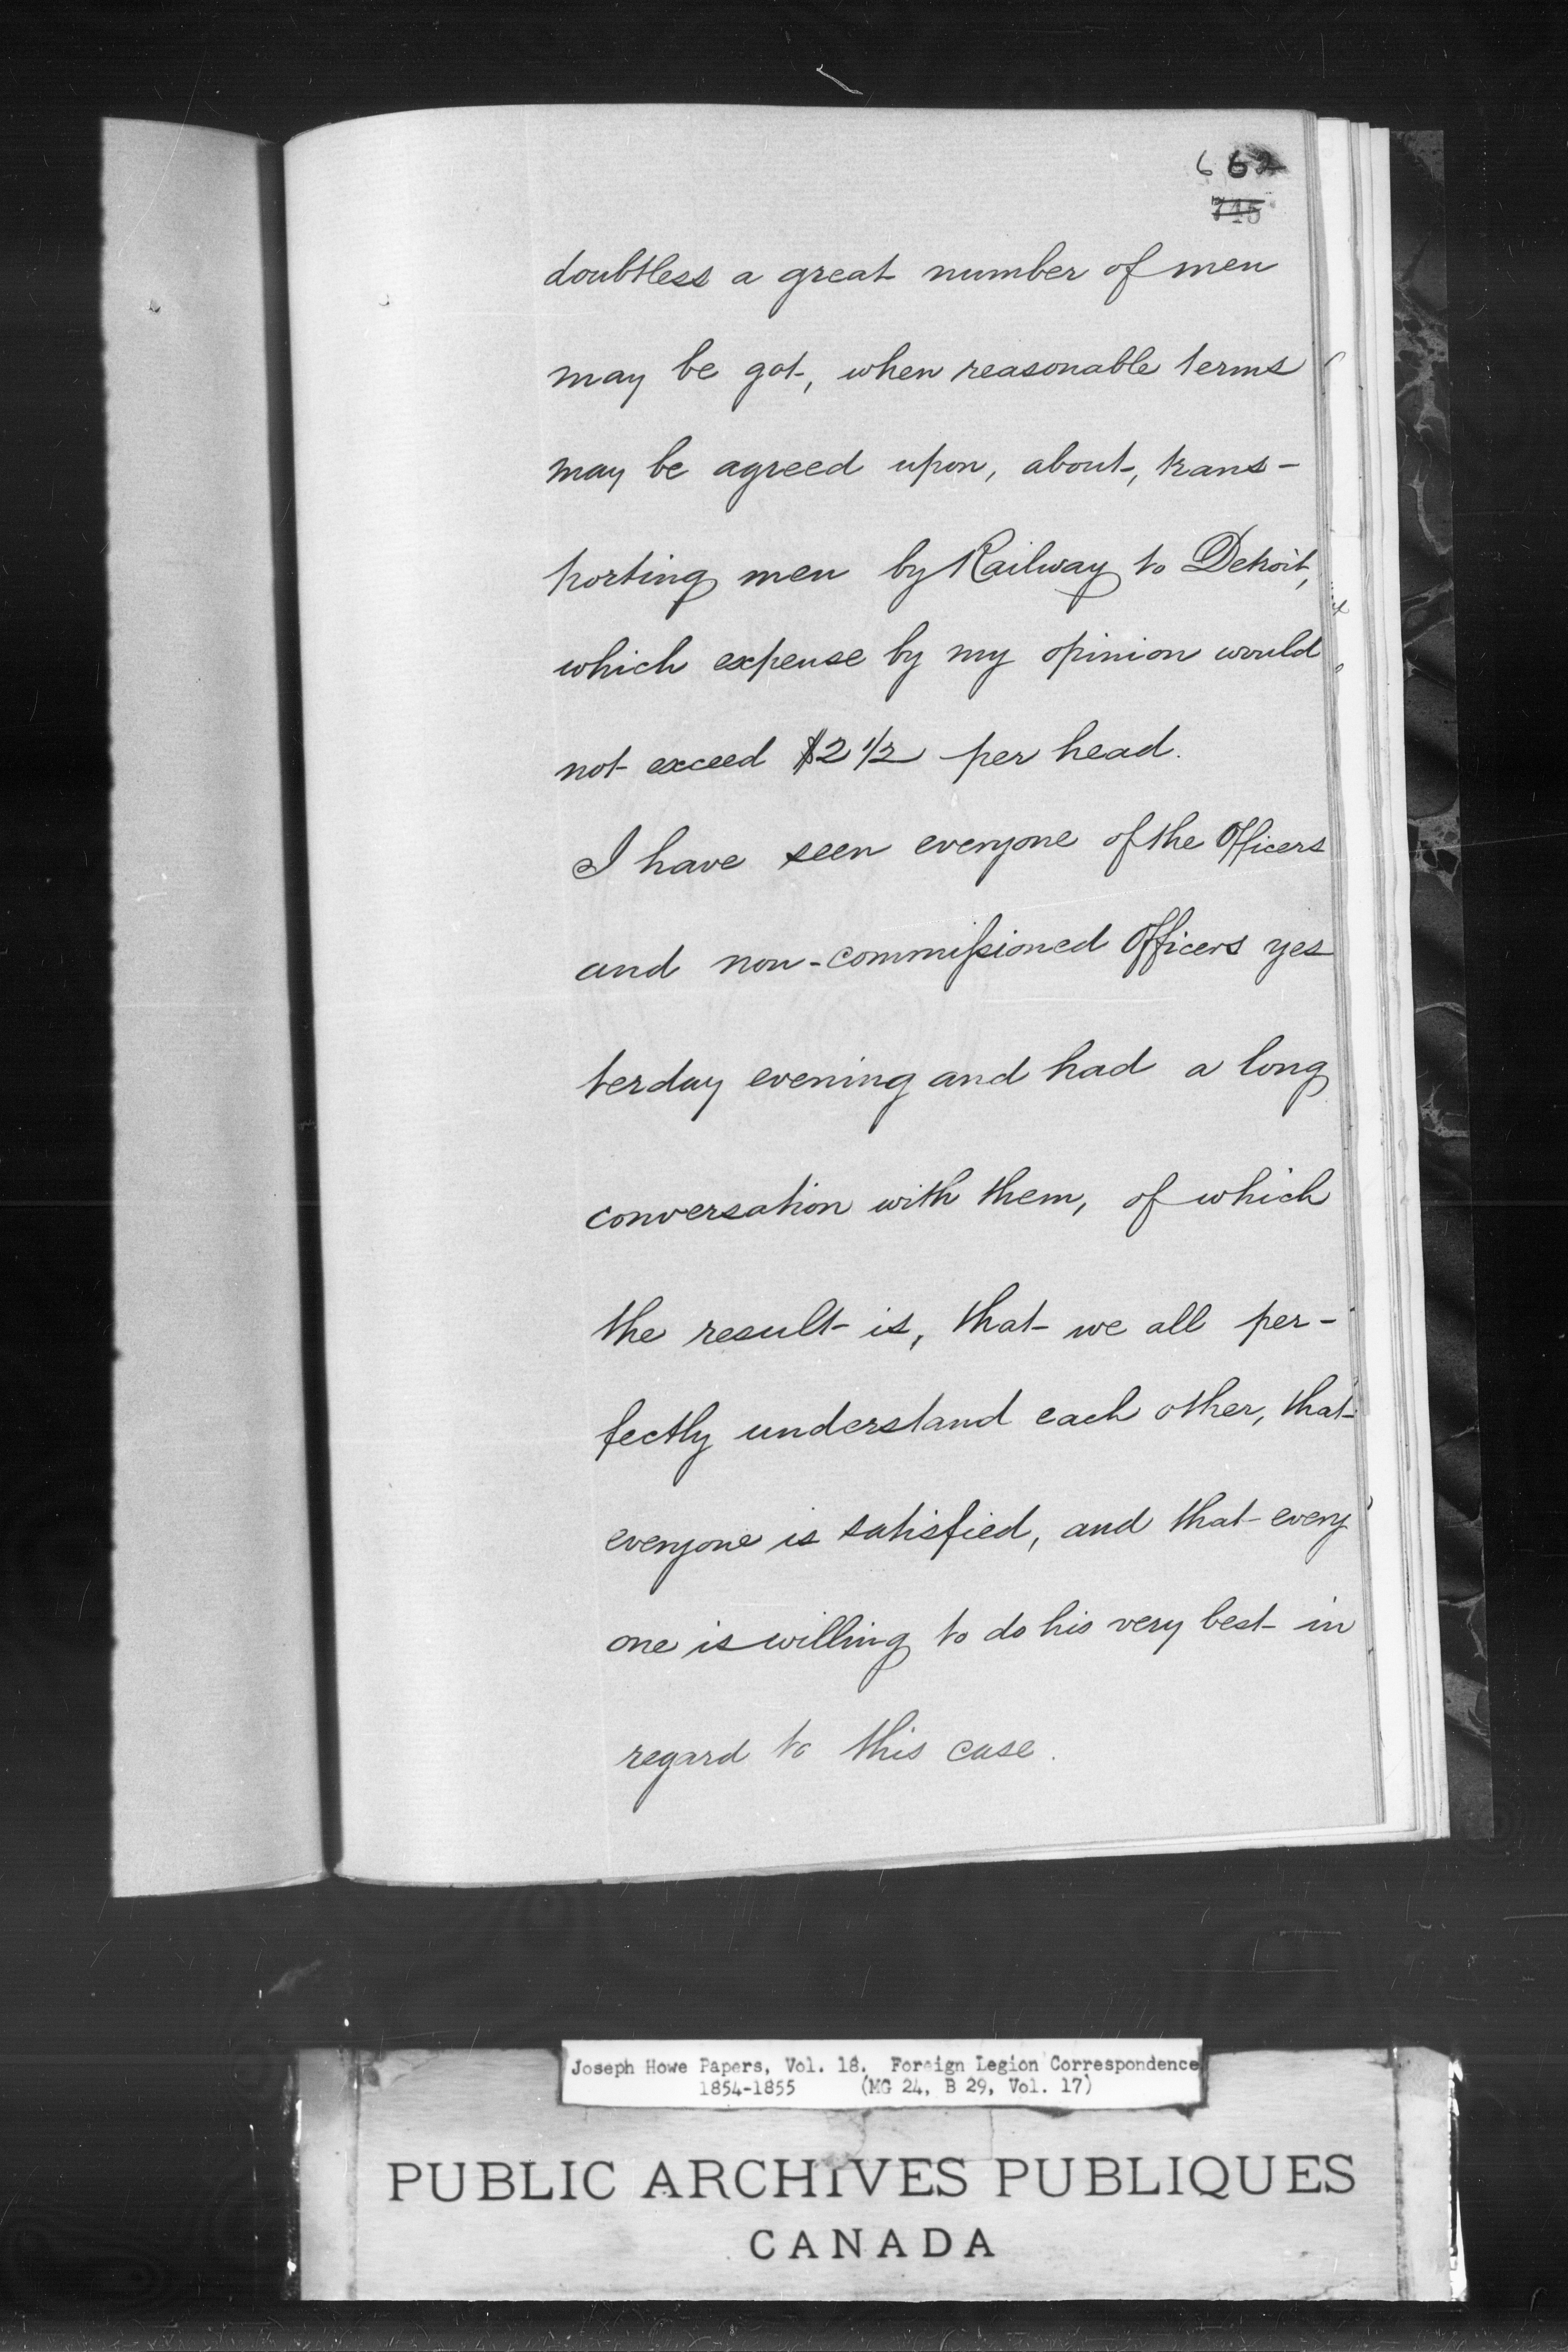 662
745
doubtless a great number of men
may be got, when reasonable terms
may be agreed upon, about, trans-
porting men by Railway to Detroit,
which expense by my opinion would
not exceed $2 1/2 per head.
I have seen everyone of the Officers
and non-commissioned Officers yes
terday evening and had a long
conversation with them, of which
the result is, that we all per-
fectly understand each other, that
everyone is satisfied, and that every
one is willing to do his very best in
regard to this case.
Joseph Howe Papers, Vol. 18. Foreign Legion Correspondence
1854-1855 (MG 24, B 29, Vol. 17)
PUBLIC ARCHIVES PUBLIQUES
CANADA